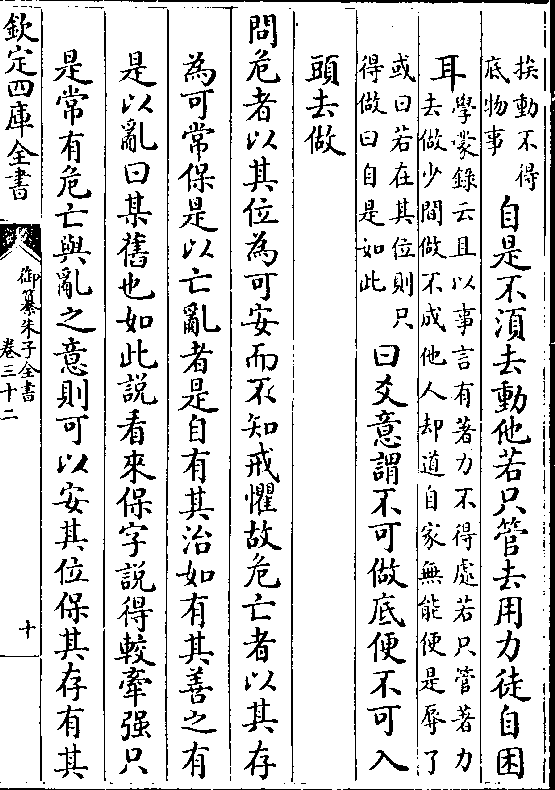 挨動不得
底物事
自是不湏去動他若只管去用力徒自困
耳
學蒙錄云且以事言有著力不得處若只管著力
去做少間做不成他人却道自家無能便是辱了
或曰若在其位則只
得做曰自是如此
曰爻意謂不可做底便不可入
頭去做
問危者以其位為可安而不知戒懼故危亡者以其存
為可常保是以亡亂者是自有其治如有其善之有
是以亂曰某舊也如此說看來保字說得較牽强只
是常有危亡與亂之意則可以安其位保其存有其
欽定四庫全書
御纂朱子全書
卷三十二
十